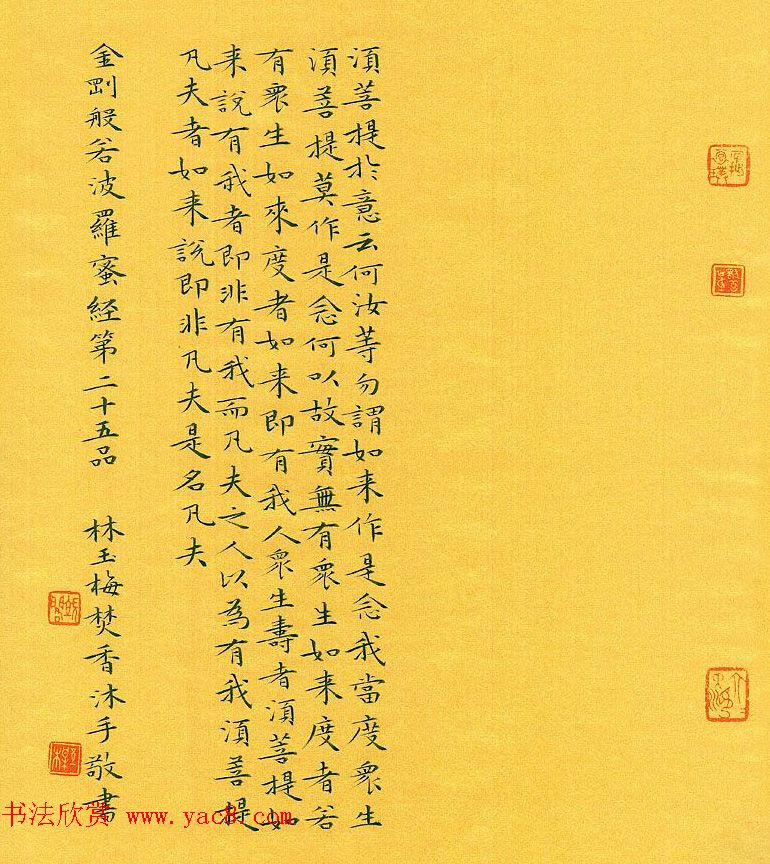 須菩提於意云何汝等勿謂如来作是念我當度眾生
須菩提莫作是念何以故實無有眾生如来度者若
有眾生如來度者如来即有我人眾生壽者須菩提如
来說有我者即非有我而凡夫之人以為有我須菩提
凡夫者如来說即非凡夫是名凡夫
金剛般若波羅蜜経第二十五品 林玉梅焚香沐手敬書
书法欣赏 www.yac8.com